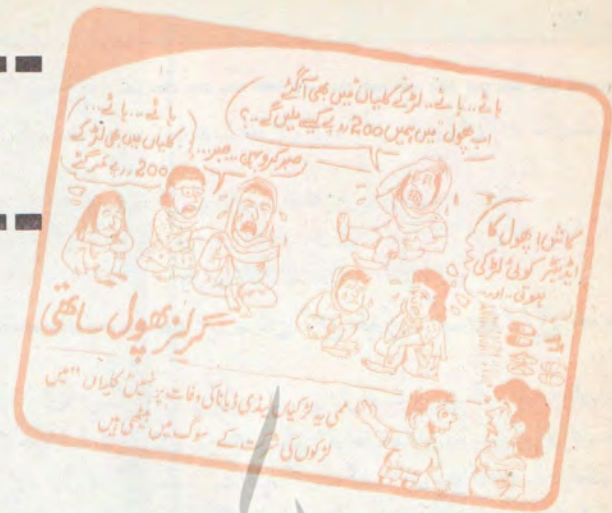 ہائے.. ہائے.. لڑکے کلیاں میں بھی آگئے
اب پھول میں ہمیں 200 روپے کیسے ملیں گے..؟
ہائے.. ہائے...
کلیاں میں بھی لڑکے
200 روپے
صبر کرو بہن.. صبر...
کاش! پھول کا
ایڈیٹر کوئی لڑکی
ہوتی.. اور
گرلز پھول ساتھی
ممی یہ لڑکیاں لیڈی ڈیانا کی وفات پر نہیں کلیاں "میں
لڑکوں کی کے سوگ میں بیٹھی ہیں